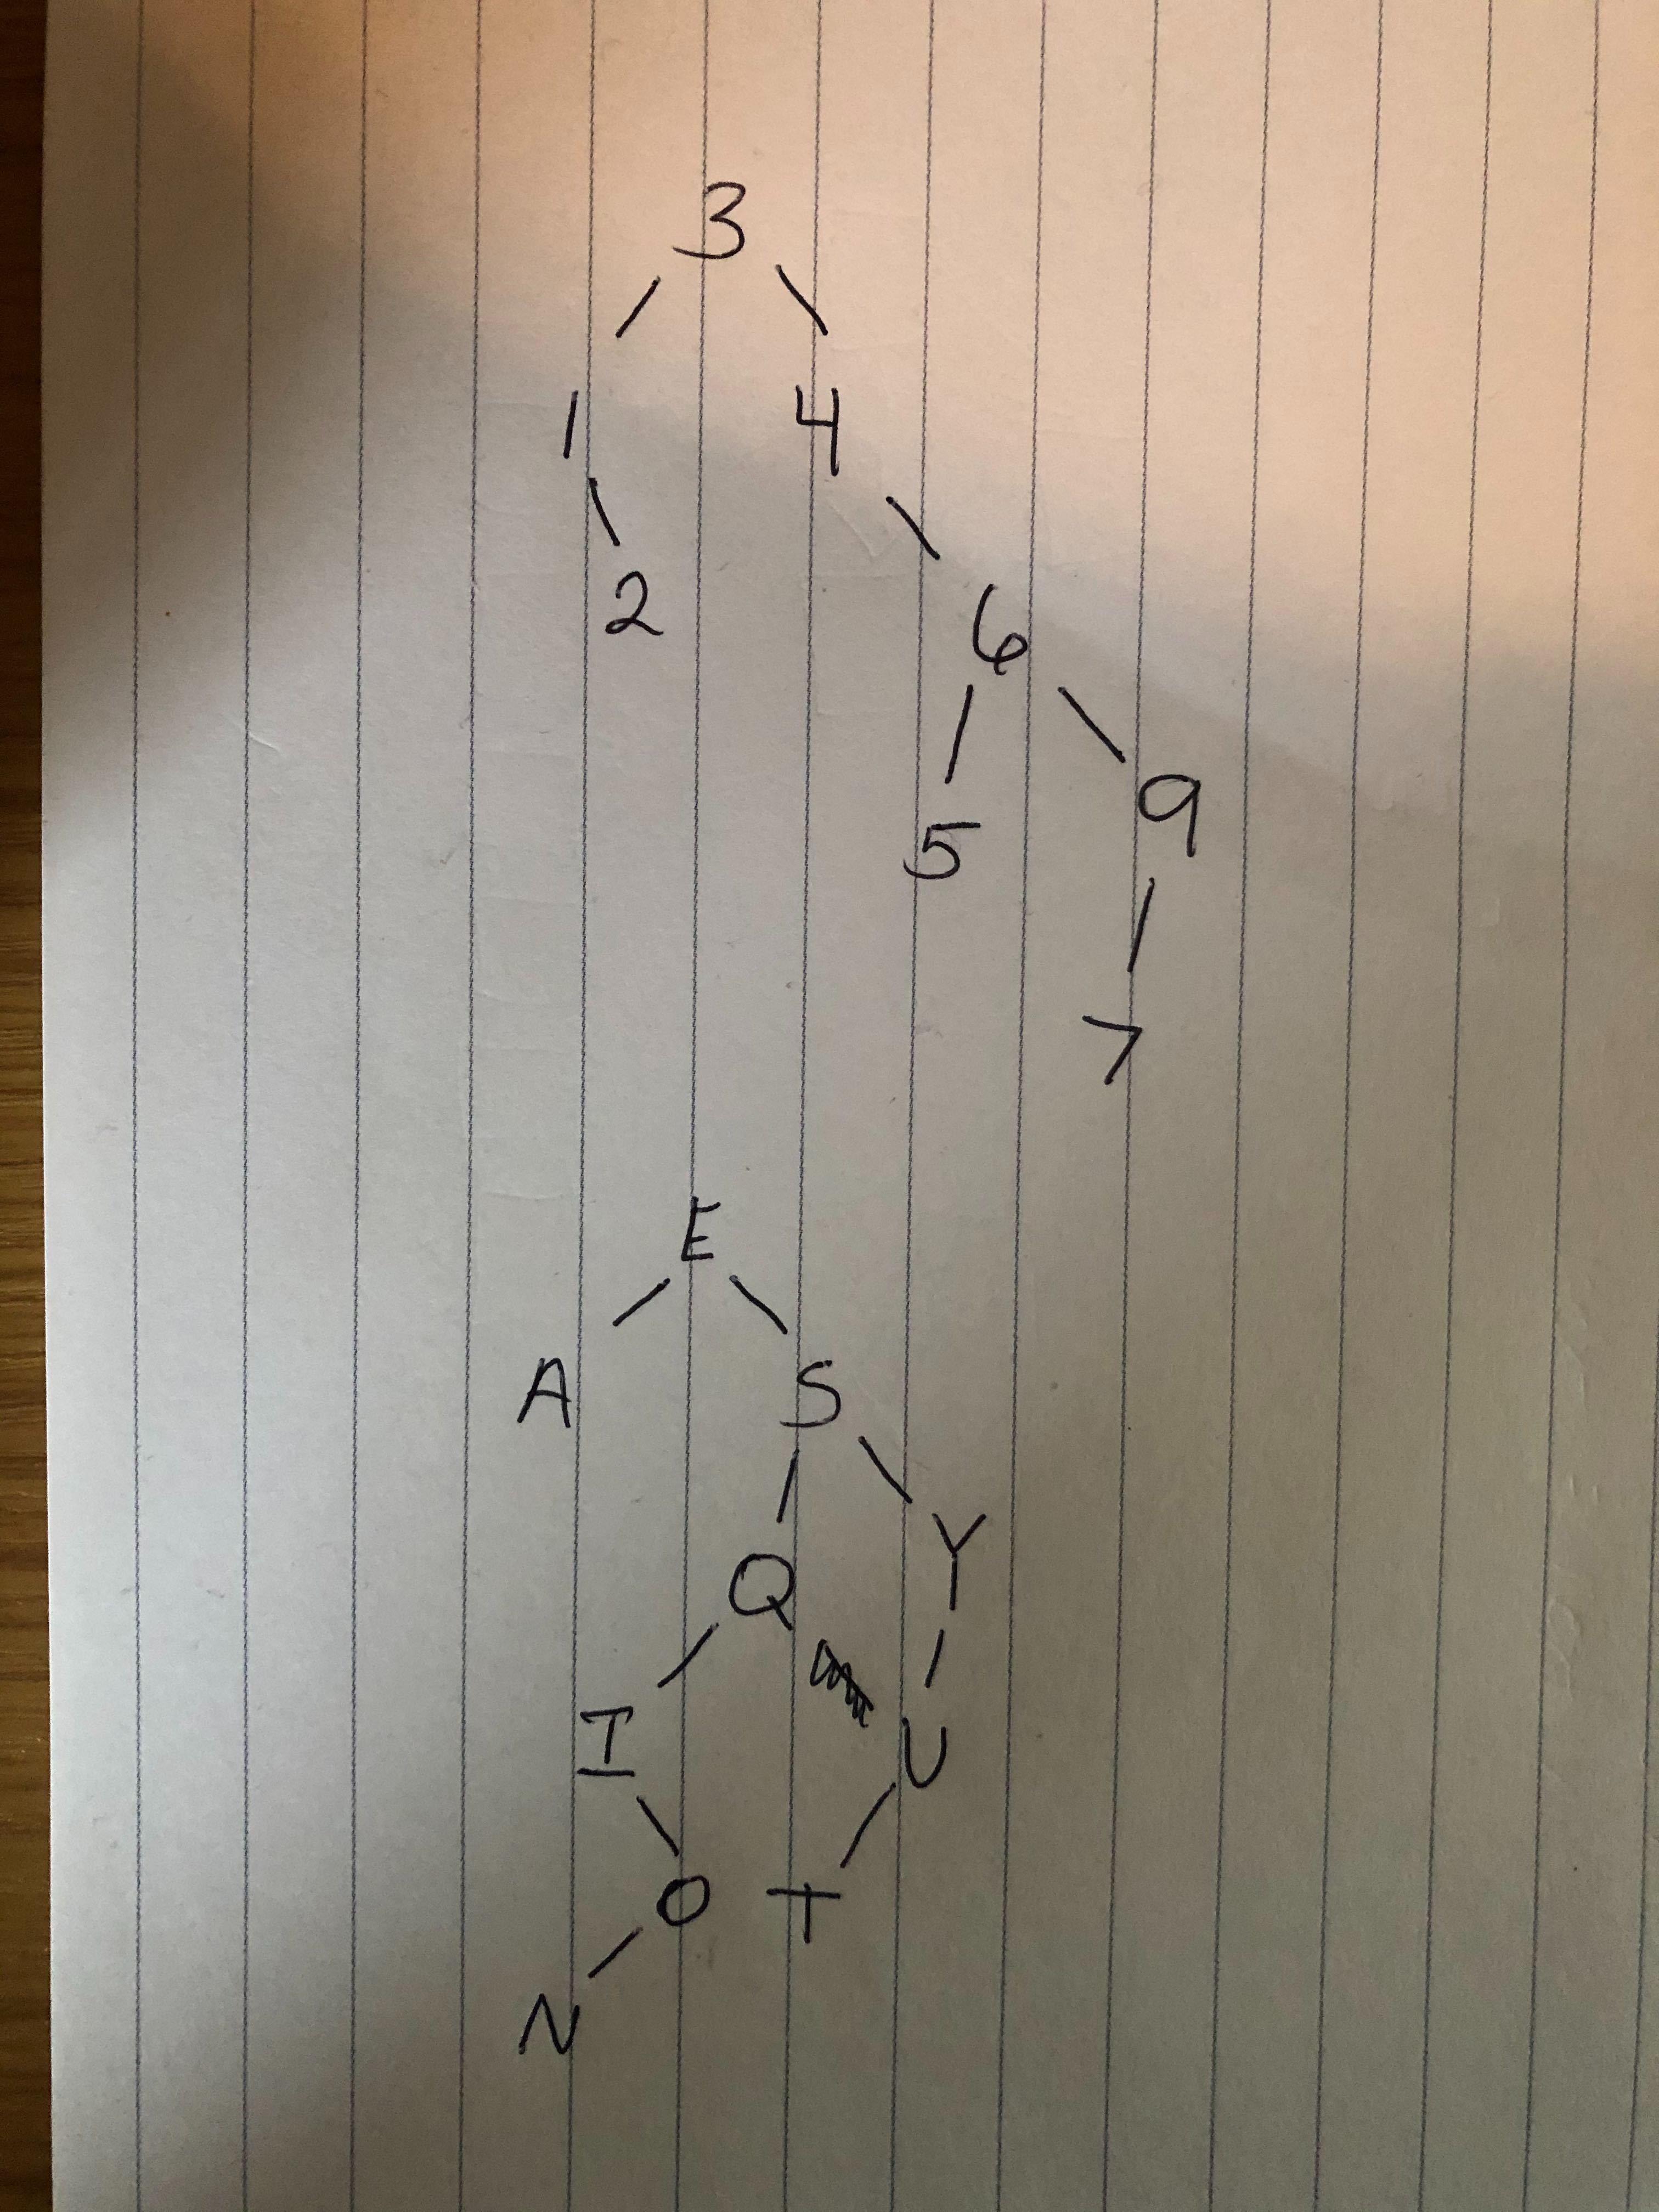 3
1 4
2 6
5 9
7
E
A S
Q Y
I U
O T
N